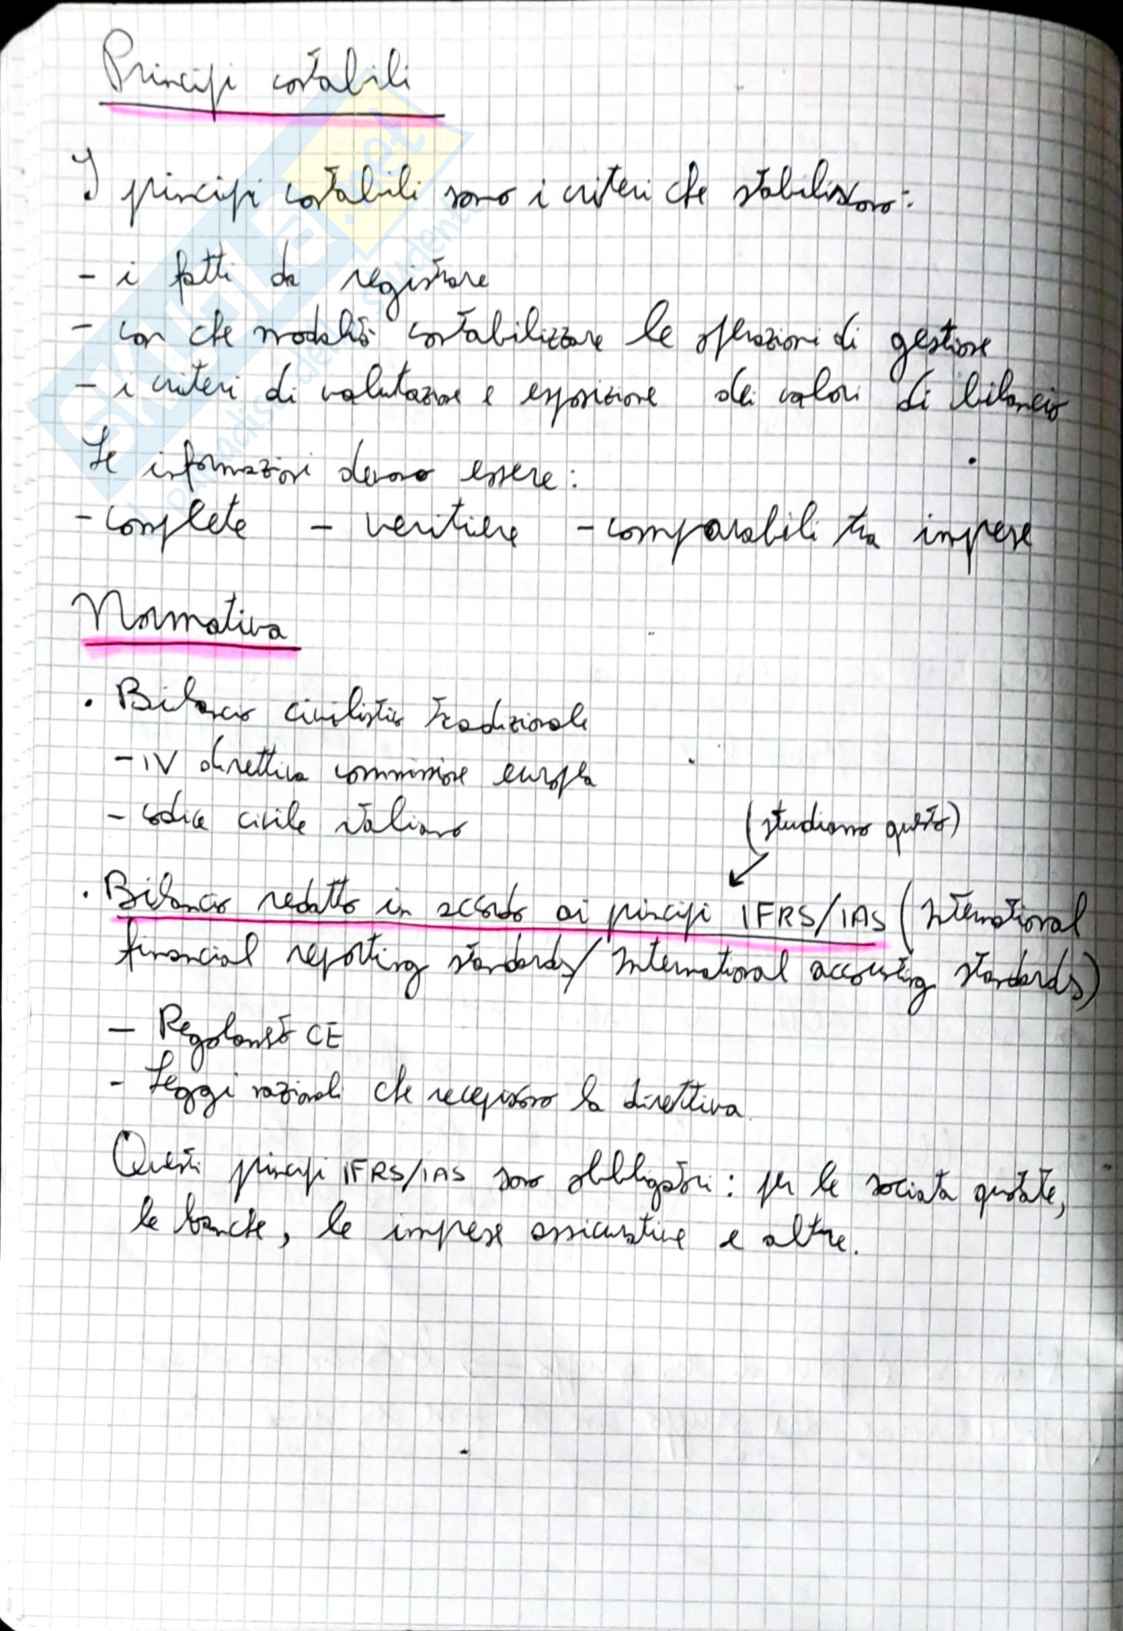 Principi contabili
I principi contabili sono i criteri che stabiliscono:
- i fatti da registrare
- con che modalità contabilizzare le operazioni di gestione
- i criteri di valutazione e esposizione dei valori di bilancio
Le informazioni devono essere:
- complete - veritiere - comparabili tra imprese
Normativa
• Bilancio civilistico tradizionale
- IV direttiva commissione europea
- codice civile italiano
(studiamo questo)
• Bilancio redatto in accordo ai principi IFRS/IAS (International
financial reporting standards/International accounting standards)
- Regolamento CE
- Leggi nazionali che recepiscono la direttiva.
Questi principi IFRS/IAS sono obbligatori: per le società quotate,
le banche, le imprese assicurative e altre.